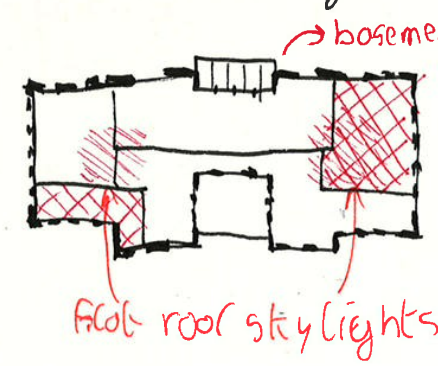 baseme
flat roof skylights